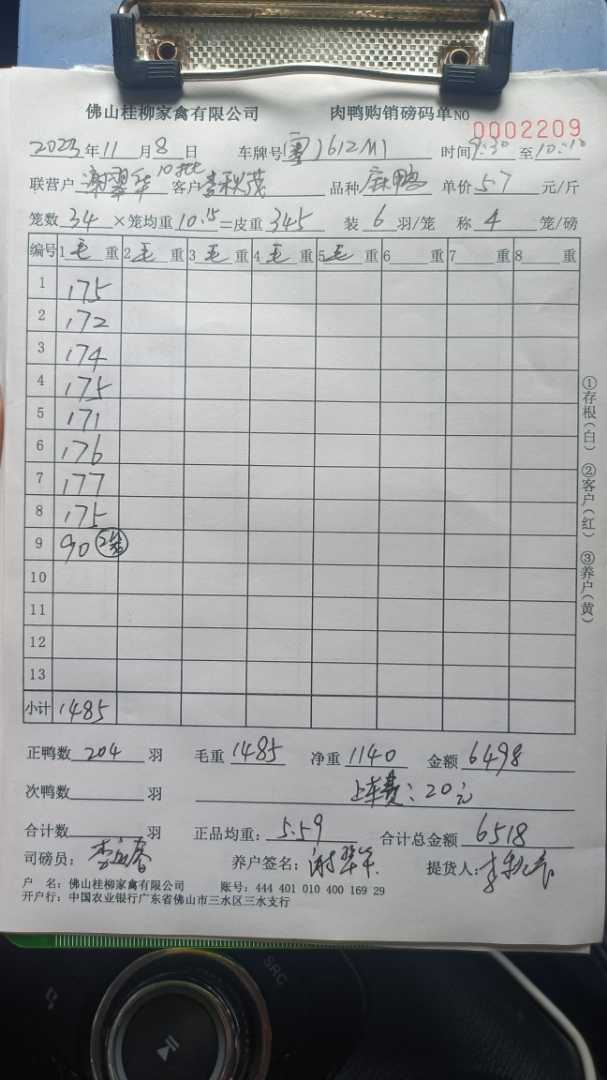 佛山桂柳家禽有限公司 肉鸭购销磅码单 NO 0002209
2023年11月8日 车牌号 1612M1 时间9:30至10:10
联营户 谢翠华 10批 客户 李秋茂 品种 麻鸭 单价 5.7 元/斤
笼数 34 ×笼均重 10.15 =皮重 345 装 6 羽/笼 称 4 笼/磅
编号 1毛重 2毛重 3毛重 4毛重 5毛重 6 重 7 重 8 重
1 175
2 172
3 174
4 175
5 171
6 176
7 177
8 175
9 90 2笼
10
11
12
13
小计 1485
正鸭数 204 羽 毛重 1485 净重 1140 金额 6498
次鸭数 羽 上车费:20元
合计数 羽 正品均重: 5.59 合计总金额 6518
司磅员: 养户签名: 谢翠华 提货人:
户 名:佛山桂柳家禽有限公司 账号:444 401 010 400 169 29
开户行:中国农业银行广东省佛山市三水区三水支行
①存根(白) ②客户(红) ③养户(黄)
SRC